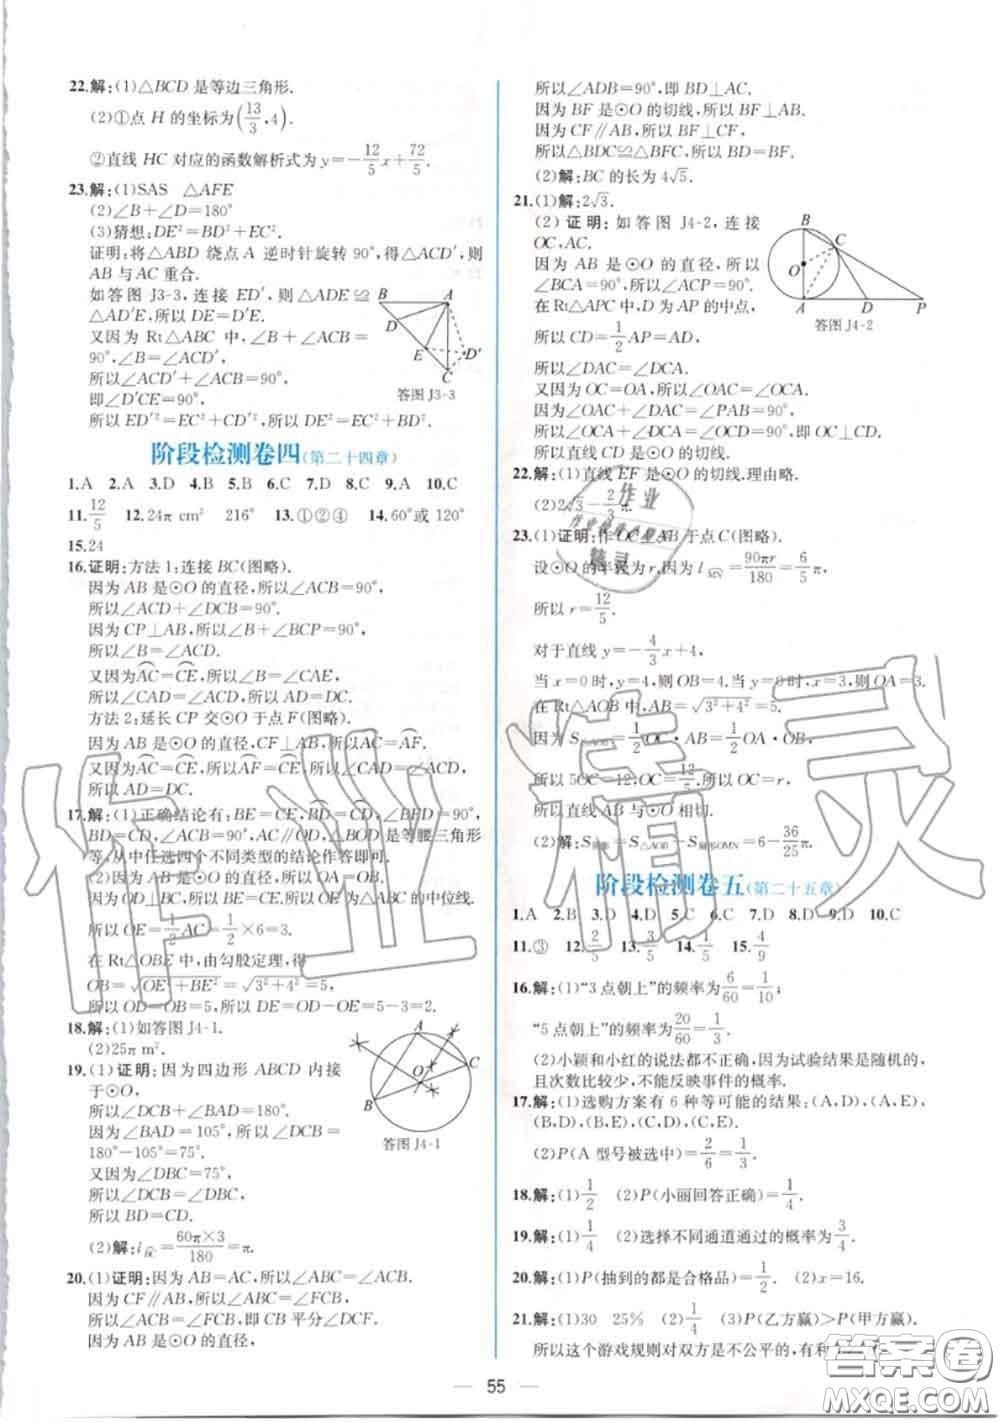 22.解:(1)△BCD 是等边三角形.
(2)①点 H 的坐标为(13/3,4).
②直线 HC 对应的函数解析式为 y=-12/5x+72/5.
23.解:(1)SAS △AFE
(2)∠B+∠D=180°
(3)猜想:DE²=BD²+EC².
证明:将△ABD 绕点 A 逆时针旋转 90°,得△ACD′,则
AB 与 AC 重合.
如答图 J3-3,连接 ED′,则△ADE≌
△AD′E,所以 DE=D′E.
又因为 Rt△ABC 中,∠B+∠ACB=
90°,∠B=∠ACD′,
所以∠ACD′+∠ACB=90°,
即∠D′CE=90°,
所以 ED′²=EC²+CD′²,所以 DE²=EC²+BD².
B A D E D′ C
答图 J3-3
阶段检测卷四(第二十四章)
1.A 2.A 3.D 4.B 5.B 6.C 7.D 8.C 9.A 10.C
11.12/5 12.24π cm² 216° 13.①②④ 14.60°或 120°
15.24
16.证明:方法 1:连接 BC(图略).
因为 AB 是⊙O 的直径,所以∠ACB=90°,
所以∠ACD+∠DCB=90°.
因为 CP⊥AB,所以∠B+∠BCP=90°,
所以∠B=∠ACD.
又因为AC=CE,所以∠B=∠CAE,
所以∠CAD=∠ACD,所以 AD=DC.
方法 2:延长 CP 交⊙O 于点 F(图略).
因为 AB 是⊙O 的直径,CF⊥AB,所以AC=AF.
又因为AC=CE,所以AF=CE,所以∠ACF=∠CAE,
所以 AD=DC.
17.解:(1)正确结论有:BE=CE,BD=CD,∠BED=90°,
BD=CD,∠ACB=90°,AC∥OD,△BOD 是等腰三角形
等,从中任选四个不同类型的结论作答即可.
因为OD⊥BC,所以 BE=CE.所以 OE 为△ABC 的中位线.
所以 OE=1/2AC=1/2×6=3.
在 Rt△OBE 中,由勾股定理,得
OB=√(OE²+BE²)=√(3²+4²)=5,
所以 OD=OB=5,所以 DE=OD-OE=5-3=2.
18.解:(1)如答图 J4-1.
(2)25π m².
19.(1)证明:因为四边形 ABCD 内接
于⊙O,
所以∠DCB+∠BAD=180°.
因为∠BAD=105°,所以∠DCB=
180°-105°=75°.
又因为∠DBC=75°,
所以∠DCB=∠DBC,
所以 BD=CD.
A C O B
答图 J4-1
(2)解:l=60π×3/180=π.
20.(1)证明:因为 AB=AC,所以∠ABC=∠ACB.
因为 CF∥AB,所以∠ABC=∠FCB,
所以∠ACB=∠FCB,即 CB 平分∠DCF.
因为 AB 是⊙O 的直径,
所以∠ADB=90°,即 BD⊥AC.
因为 BF 是⊙O 的切线,所以 BF⊥AB.
因为 CF∥AB,所以 BF⊥CF,
所以△BDC≌△BFC,所以 BD=BF.
(2)解:BC 的长为 4√5.
21.(1)解:2√3.
(2)证明:如答图 J4-2,连接
OC,AC.
因为 AB 是⊙O 的直径,所以
∠BCA=90°,所以∠ACP=90°.
在 Rt△APC 中,D 为 AP 的中点,
所以 CD=1/2AP=AD,
所以∠DAC=∠DCA.
B C O A D P
答图 J4-2
又因为 OC=OA,所以∠OAC=∠OCA.
因为∠OAC+∠DAC=∠PAB=90°,
所以∠OCA+∠DCA=∠OCD=90°,
所以直线 CD 是⊙O 的切线.
22.解:(1)直线 EF 是⊙O 的切线.理由略.
(2)2√3-2/3π.
23.(1)证明:作 OC⊥AB 于点 C(图略).
设⊙O 的半径为 r,因为 lMN=90πr/180=6/5π,
所以 r=12/5.
对于直线 y=-4/3x+4,
当 x=0 时,y=4,则 OB=4.当 y=0 时,x=3,则 OA=3.
在 Rt△AOB 中,AB=√(3²+4²)=5.
因为 S△AOB=1/2OC·AB=1/2OA·OB,
所以 5OC=12,OC=12/5=r,
所以直线 AB 与⊙O 相切.
(2)解:S阴影=S△AOB-S扇形OMN=6-36/25π.
阶段检测卷五(第二十五章)
1.A 2.B 3.D 4.D 5.C 6.C 7.D 8.D 9.D 10.C
11.③ 12.2/5 13.1/4 14.1/5 15.4/9
16.解:(1)“3 点朝上”的频率为6/60=1/10;
“5 点朝上”的频率为20/60=1/3.
(2)小颖和小红的说法都不正确,因为试验结果是随机的,
且次数比较少,不能反映事件的概率.
17.解:(1)选购方案有 6 种等可能的结果:(A,D),(A,E),
(B,D),(B,E),(C,D),(C,E).
(2)P(A 型号被选中)=2/6=1/3.
18.解:(1)1/2 (2)P(小丽回答正确)=1/4.
19.解:(1)1/4 (2)选择不同通道通过的概率为3/4.
20.解:(1)P(抽到的都是合格品)=1/2. (2)x=16.
21.解:(1)30 25% (2)1/4 (3)P(乙方赢)>P(甲方赢).
所以这个游戏规则对双方是不公平的,有利
55
作业精灵
答案圈
MXQE.COM